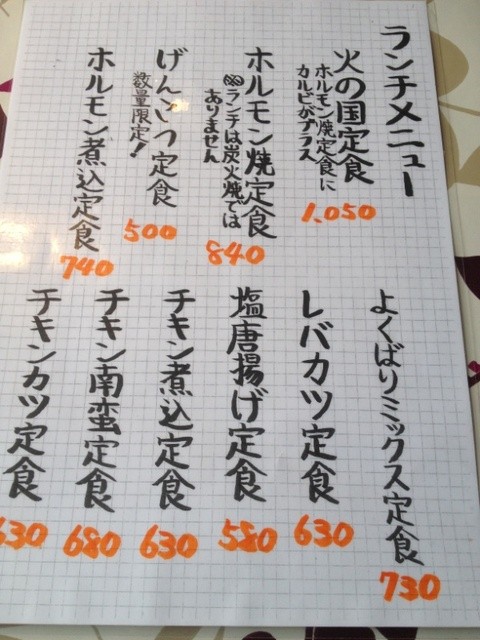 ランチメニュー
火の国定食
ホルモン焼定食に
カルビがプラス
1,050
ホルモン焼定食
ランチは炭火焼では
ありません
840
げんこつ定食
数量限定!
500
ホルモン煮込定食
740
よくばりミックス定食
730
レバカツ定食
630
塩唐揚げ定食
580
チキン煮込定食
630
チキン南蛮定食
680
チキンカツ定食
630